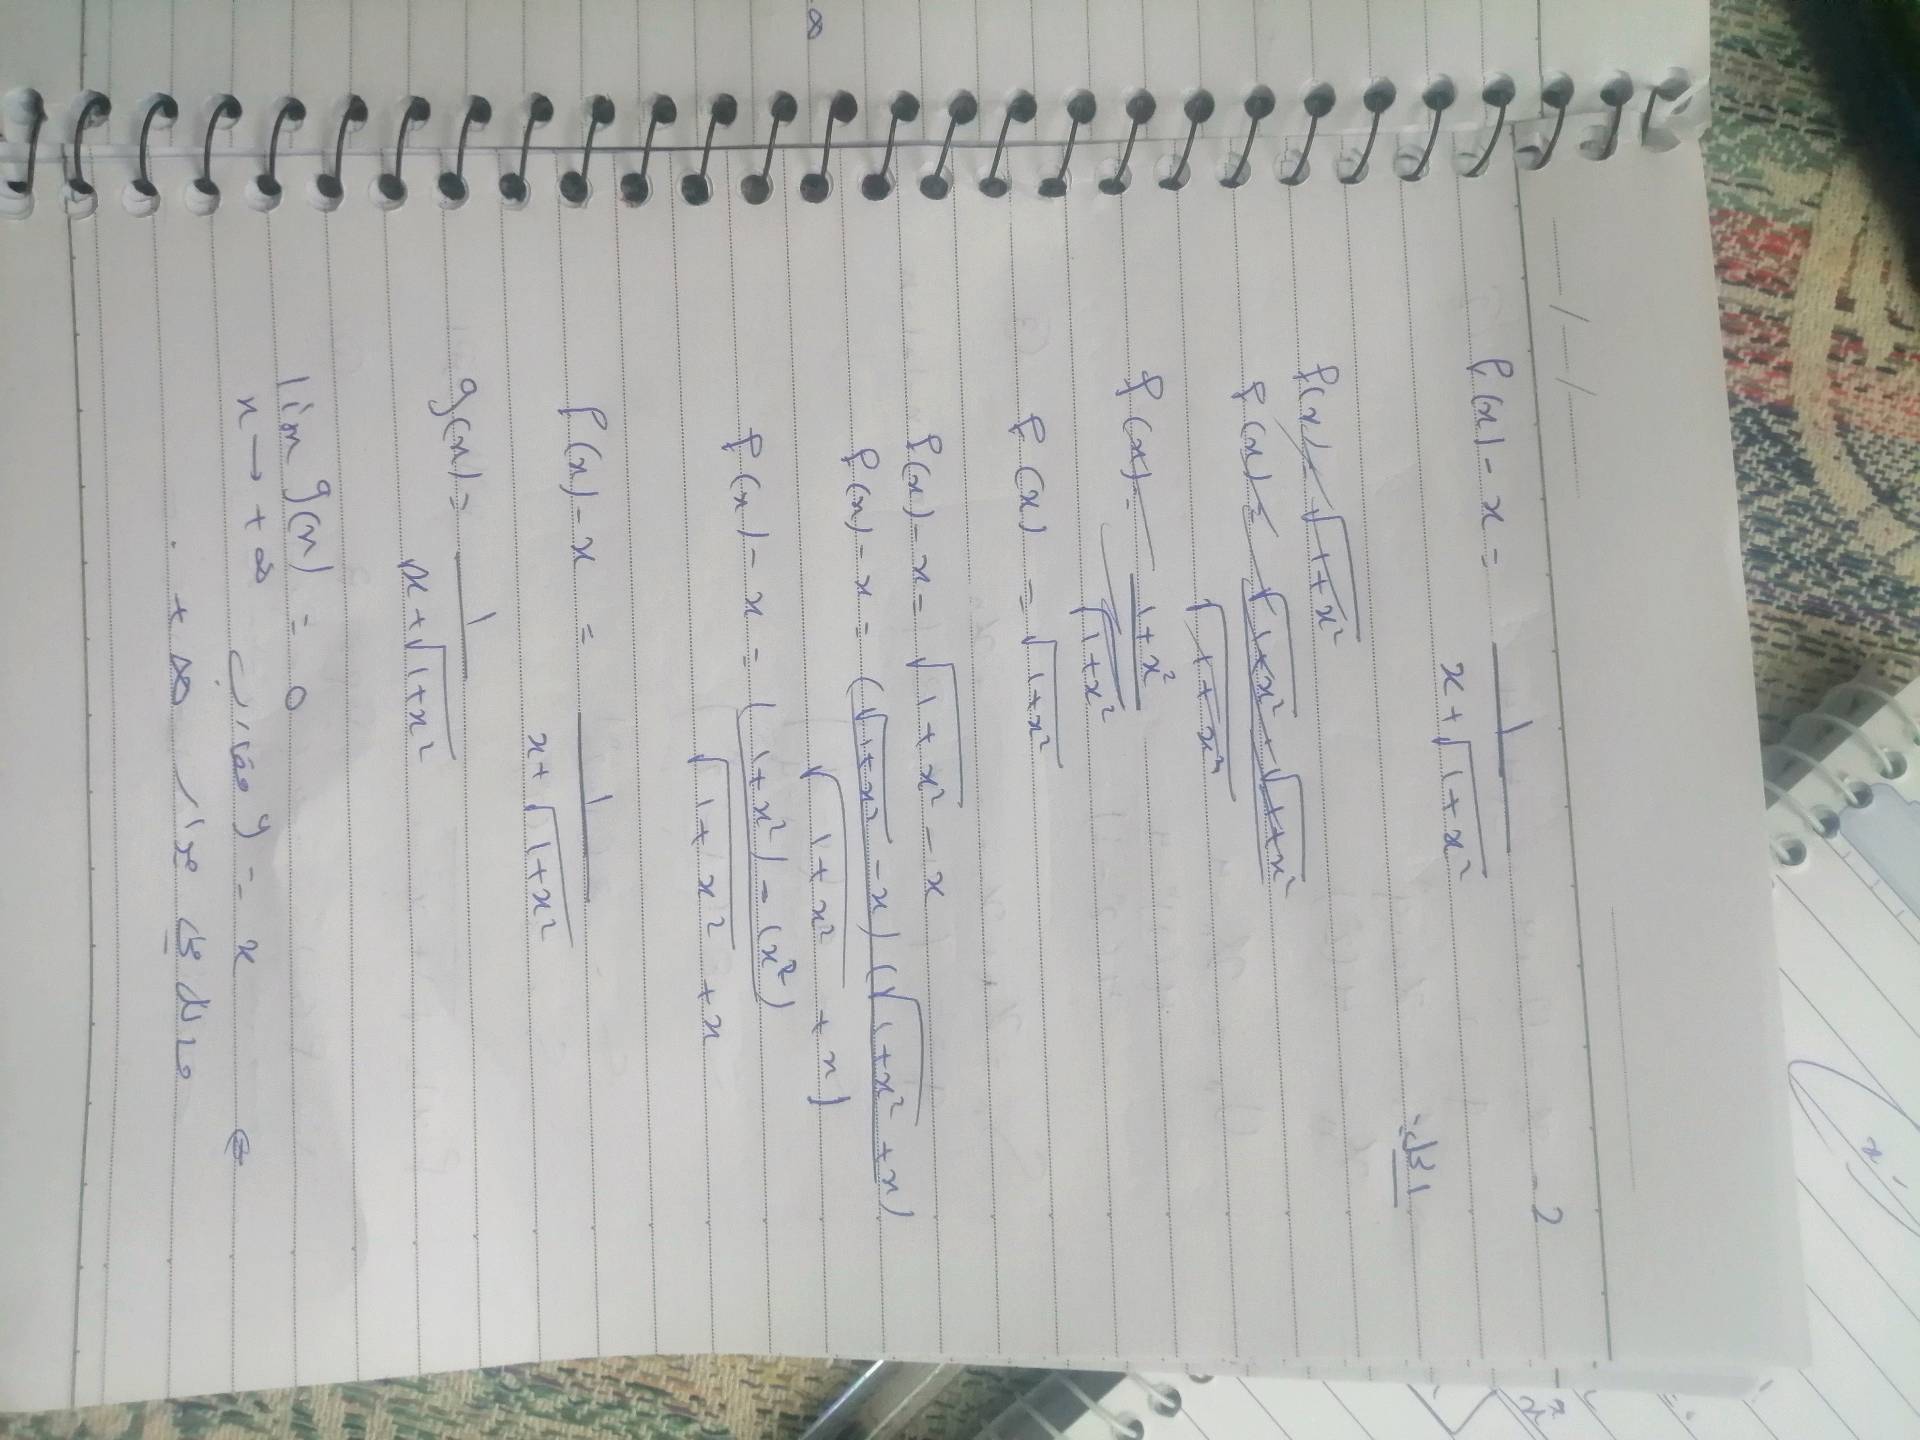 2
f(x) - x = 1 / (x + √(1+x²))
f(x) = √(1+x²)
f(x) = √(1+x²) · √(1+x²) / √(1+x²)
f(x) = 1+x² / √(1+x²)
f(x) = √(1+x²)
f(x) - x = √(1+x²) - x
f(x) - x = (√(1+x²) - x)(√(1+x²) + x) / (√(1+x²) + x)
f(x) - x = (1+x²) - (x²) / √(1+x²) + x
f(x) - x = 1 / (x + √(1+x²))
g(x) = 1 / (x + √(1+x²))
lim g(x) = 0
x → +∞
y = x
+∞